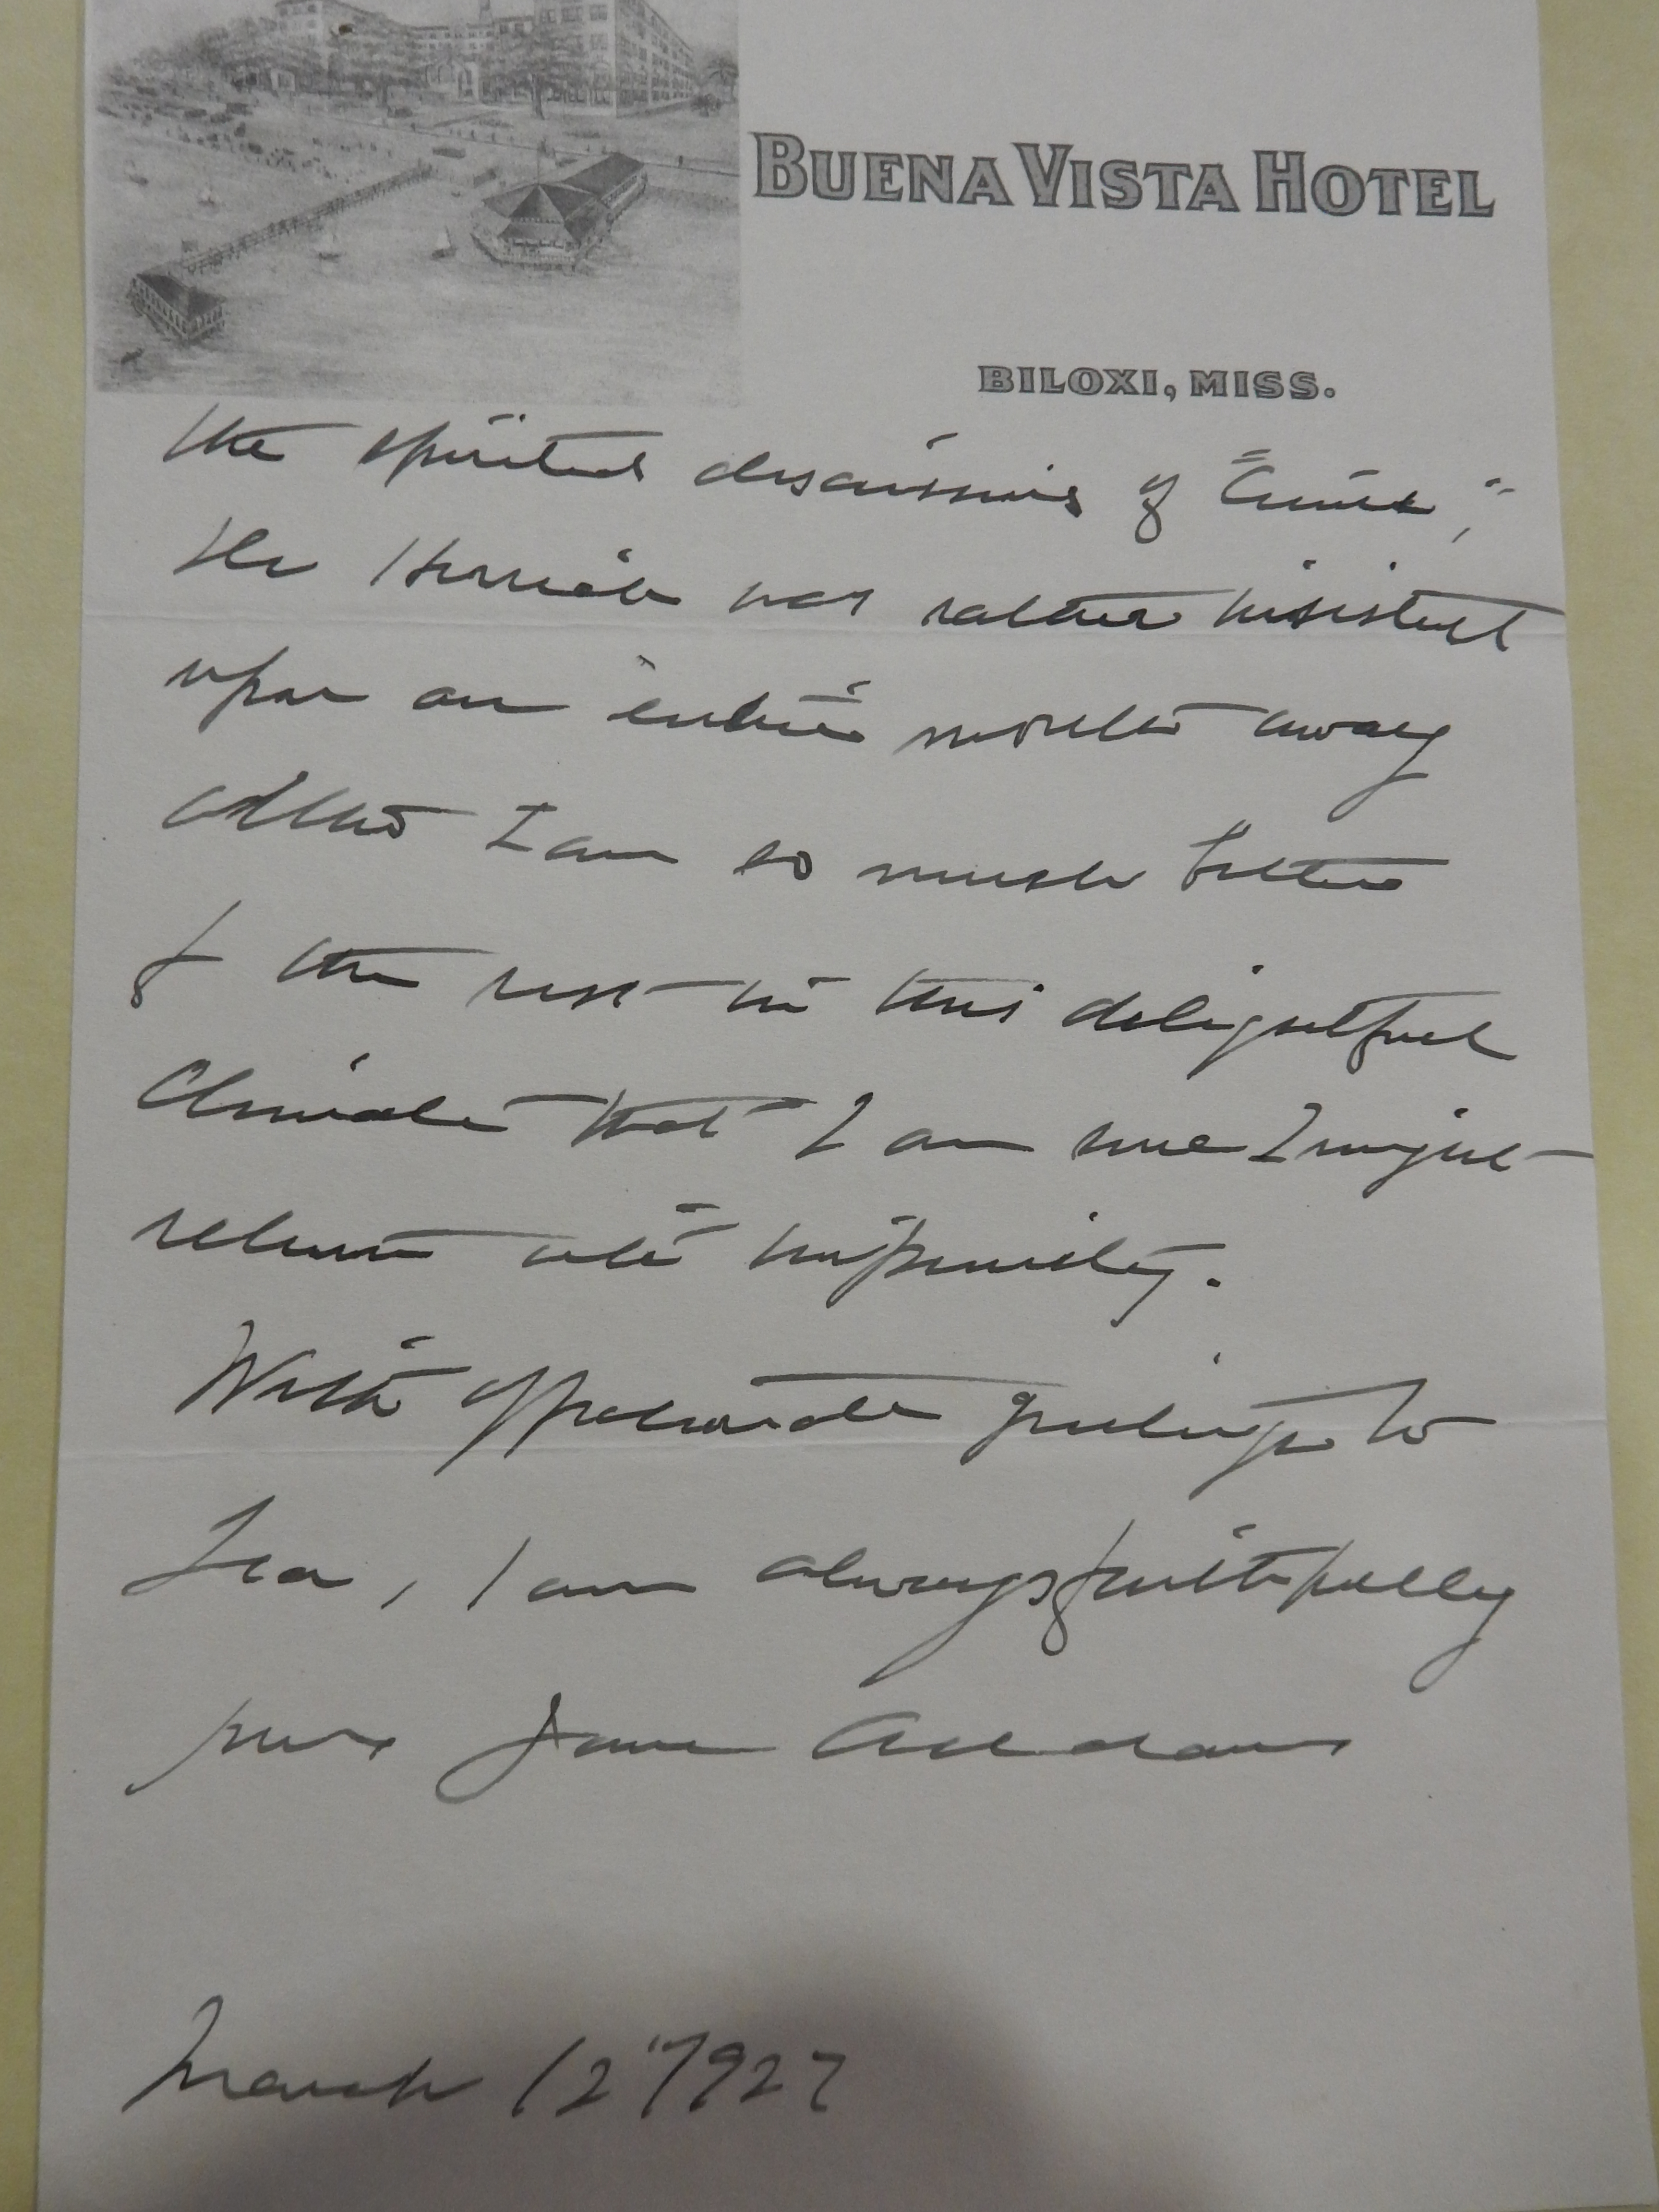 BUENA VISTA HOTEL
BILOXI, MISS.
the spirited discussions of
the was rather insistent
upon an entire month away
altho I am so much better
for the rest in this delightful
Climate that I am sure I might
return with impunity.
With affectionate greetings to
I am always faithfully
yours Jane Addams
March 12" 1927